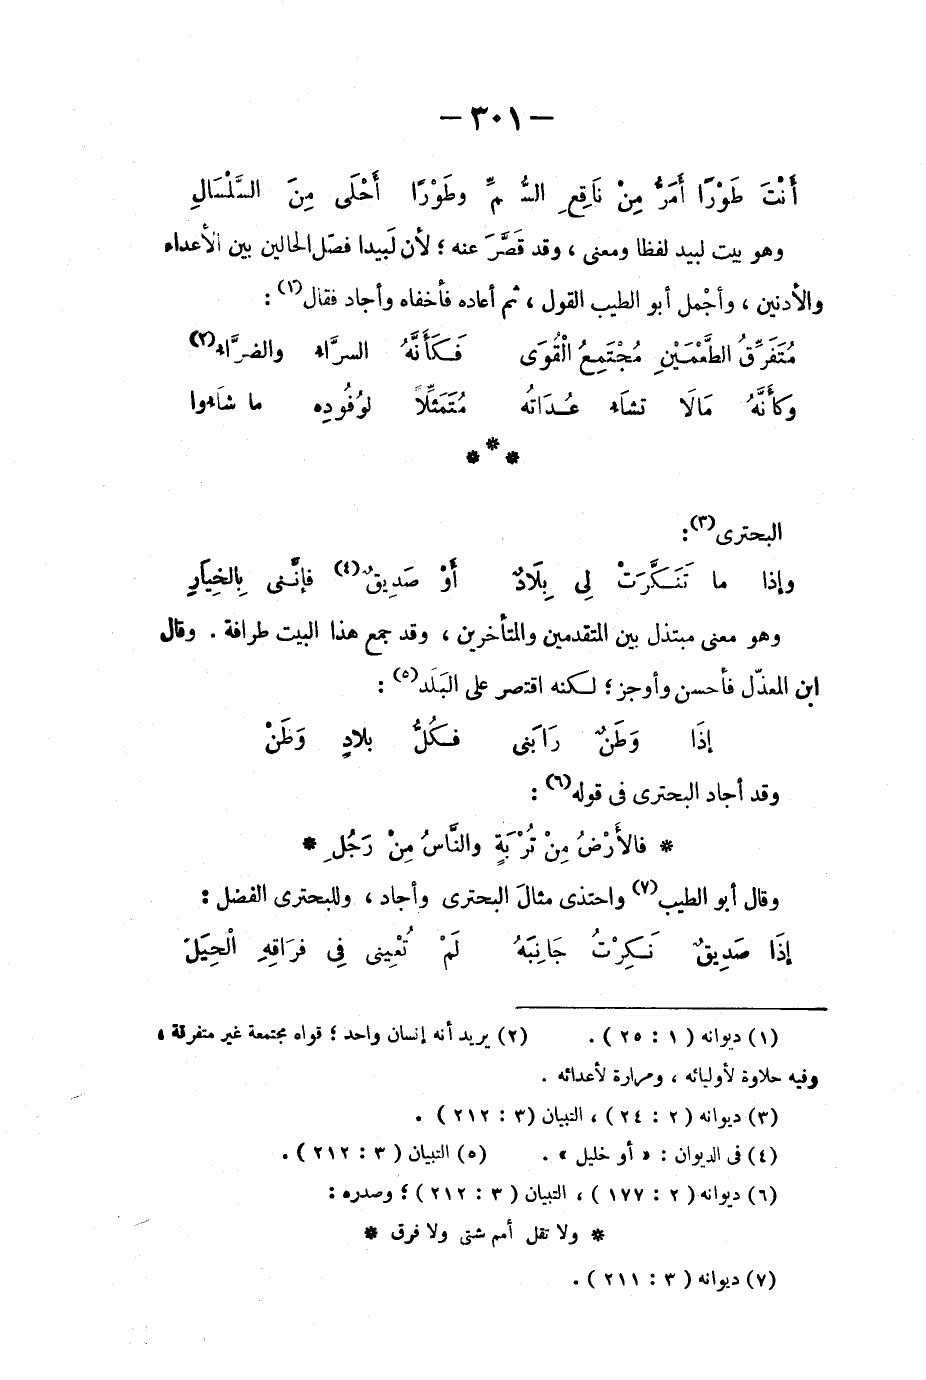 — ٣٠١ —
أَنْتَ طَوْرًا أَمَرُّ مِنْ نَاقِعِ السُّمِّ وطَوْرًا أَحْلَى مِنَ السَّلْسَالِ
وهو بيت لبيد لفظا ومعنى ، وقد قَصَّرَ عنه ؛ لأن لَبيدا فصّل الحالين بين الأعداء
والأدنين ، وأجْمل أبو الطيب القول ، ثم أعاده فأخفاه وأجاد فقال(١) :
مُتَفَرِّقُ الطَّعْمَيْنِ مُجْتَمِعُ الْقُوَى فَكَأَنَّهُ السرَّاء والضرَّاء(٢)
وكأنَّهُ مَالَا تشاَء عُدَاتُهُ مُتَمَثِّلًا لوُفُودِه ما شاَءوا
* * *
البحترى(٣) :
وإذا ما تَنَكَّرَتْ لِى بِلَادٌ أَوْ صَدِيقٌ(٤) فإنَّنى بِالخِيَارِ
وهو معنى مبتذل بين المتقدمين والمتأخرين ، وقد جمع هذا البيت طرافة . وقال
ابن المعذّل فأحسن وأوجز ؛ لكنه اقتصر على البَلَد(٥) :
إذَا وَطَنٌ رَابَنى فكُلُّ بلادٍ وَطَنْ
وقد أجاد البحترى فى قوله(٦) :
* فالأَرْضُ مِنْ تُرْبَةٍ والنَّاسُ مِنْ رَجُلِ *
وقال أبو الطيب(٧) واحتذى مثالَ البحترى وأجاد ، وللبحترى الفضل :
إذَا صَدِيقٌ نَكِرْتُ جَانِبَهُ لَمْ تُعْينِى فِى فرَاقِهِ الْحِيَلُ
(١) ديوانه ( ١ : ٢٥ ) . (٢) يريد أنه إنسان واحد ؛ قواه مجتمعة غير متفرقة ،
وفيه حلاوة لأوليائه ، ومرارة لأعدائه .
(٣) ديوانه ( ٢ : ٢٤ ) ، التبيان (٣ : ٢١٢ ) .
(٤) فى الديوان : « أو خليل » . (٥) التبيان ( ٣ : ٢١٢ ) .
(٦) ديوانه ( ٢ : ١٧٧ ) ، التبيان ( ٣ : ٢١٢ ) ؛ وصدره :
* ولا تقل أمم شتى ولا فرق *
(٧) ديوانه ( ٣ : ٢١١ ) .